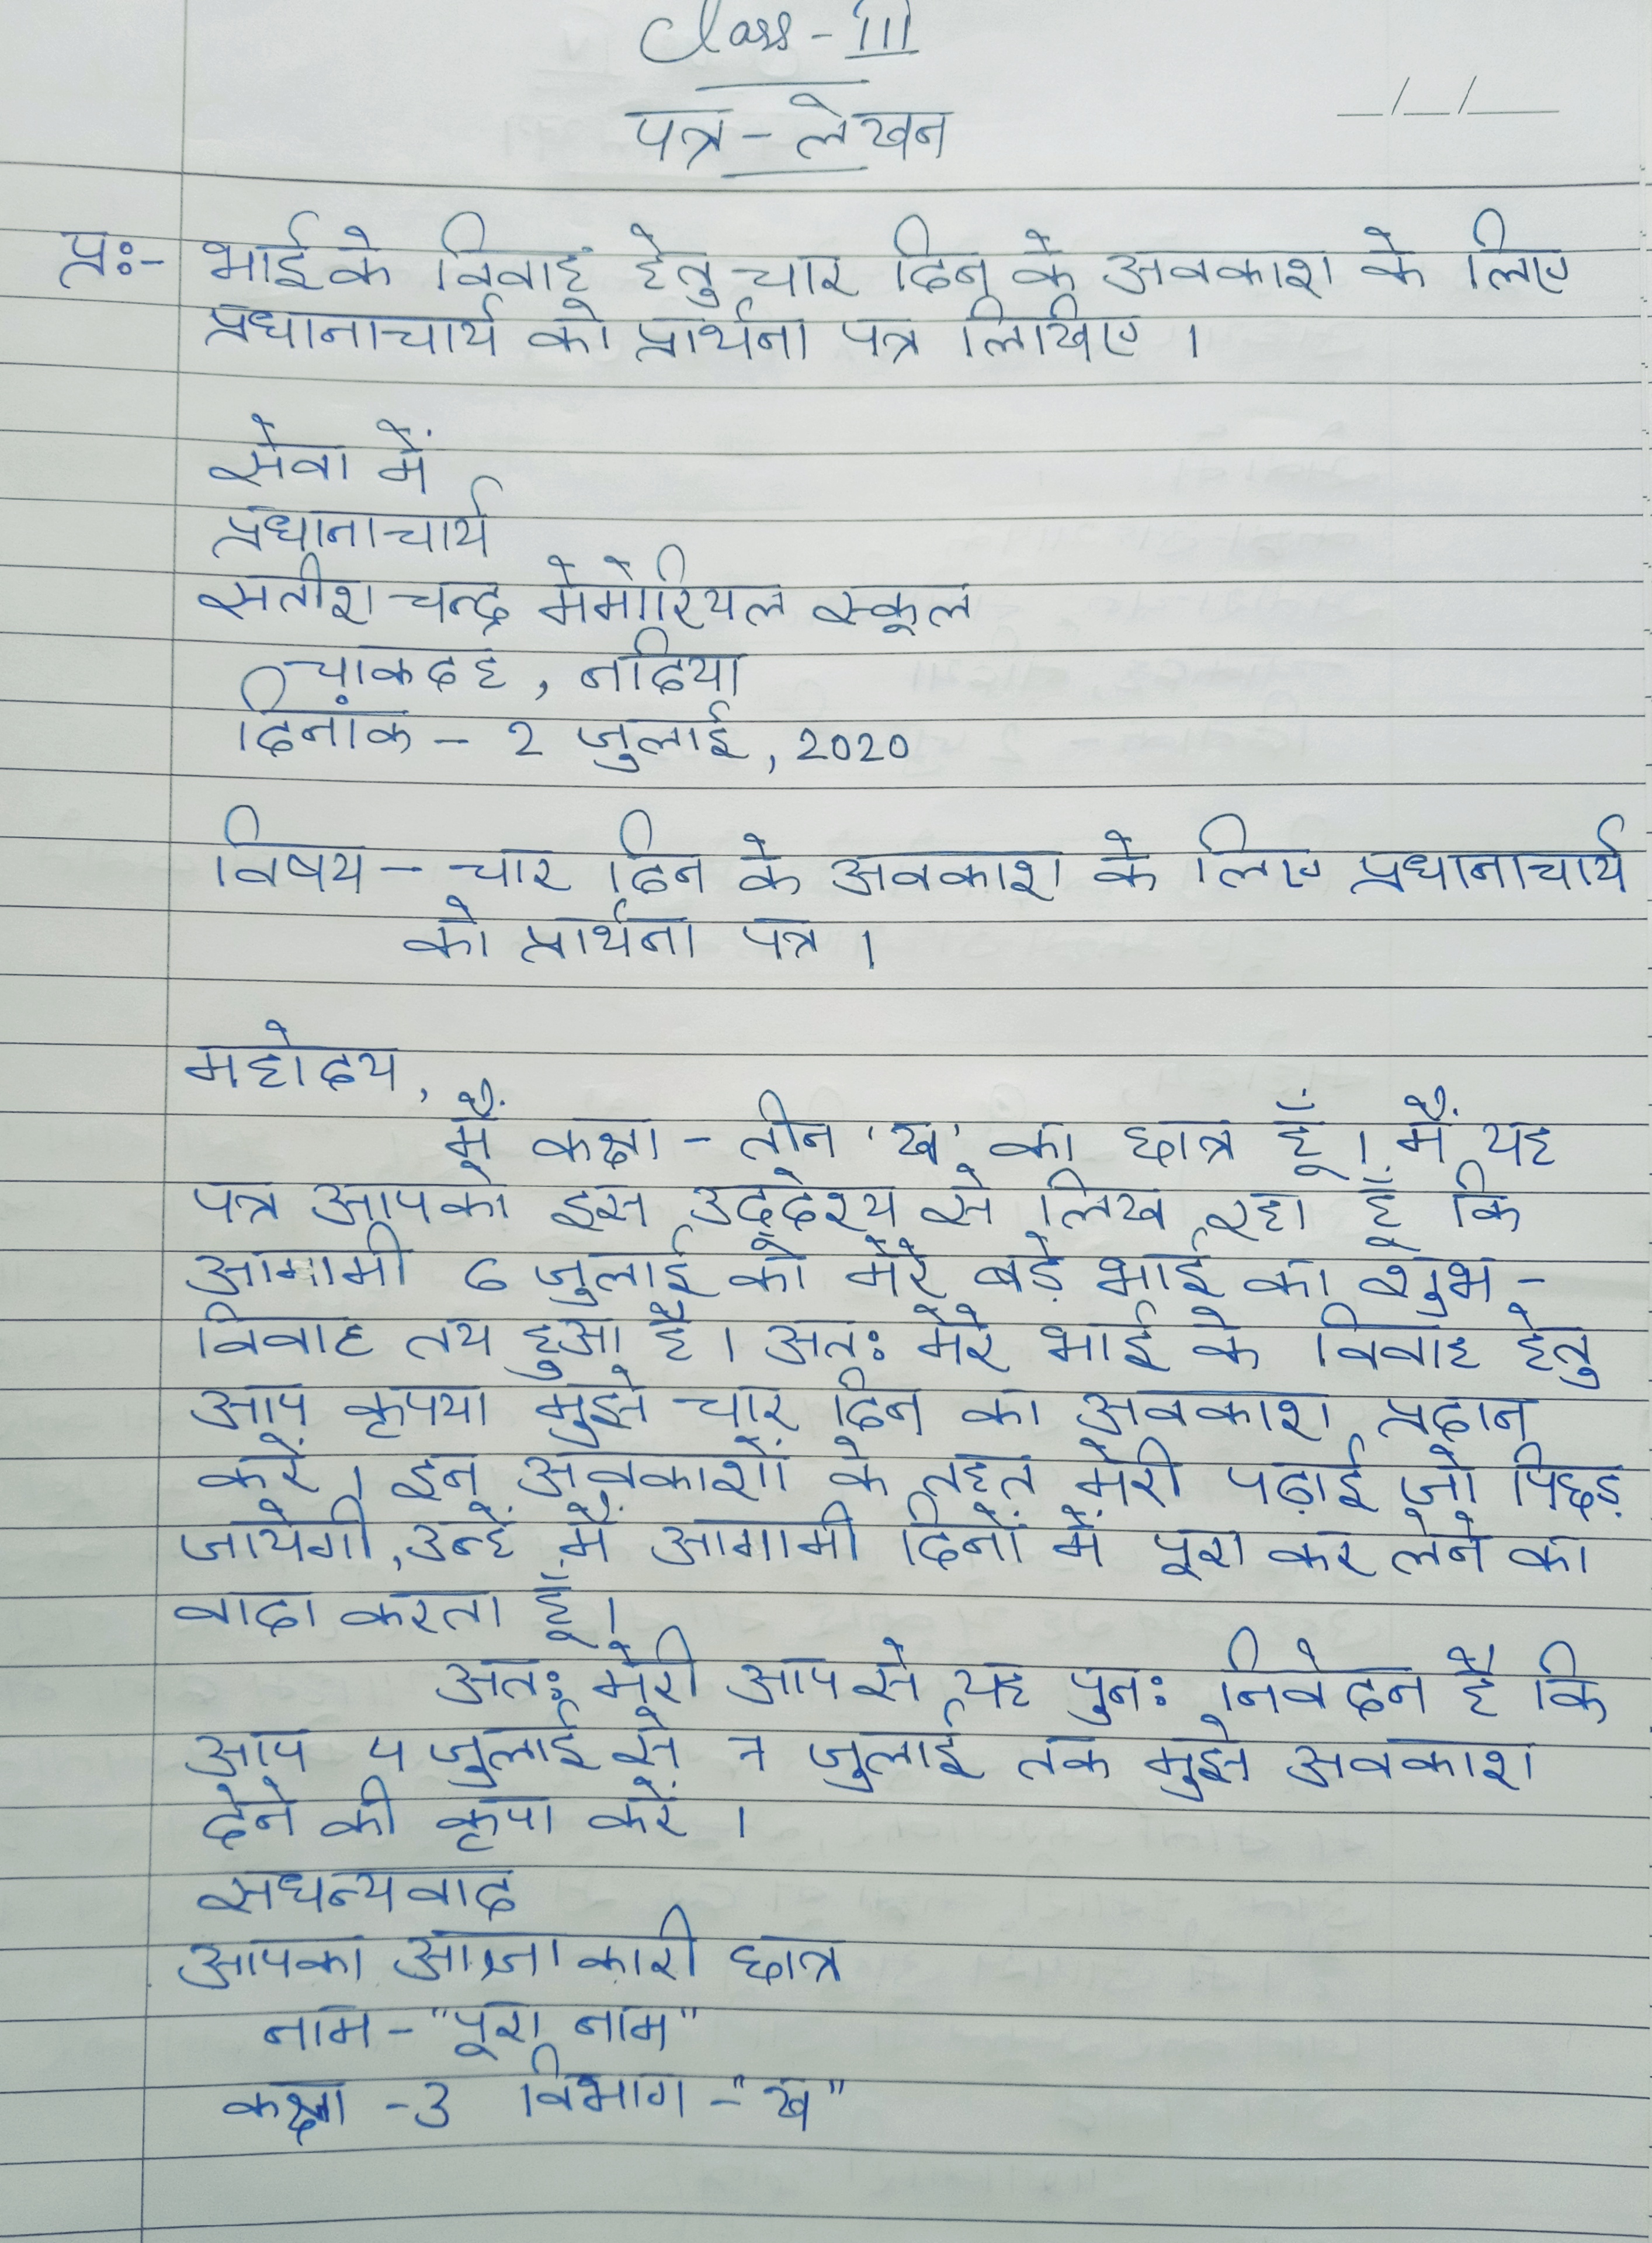 Class - III
पत्र - लेखन
_/_/__
प्रः- भाई के विवाह हेतु चार दिन के अवकाश के लिए
प्रधानाचार्य को प्रार्थना पत्र लिखिए ।
सेवा में
प्रधानाचार्य
सतीश चन्द्र मेमोरियल स्कूल
चाकदह, नदिया
दिनांक - 2 जुलाई, 2020
विषय - चार दिन के अवकाश के लिए प्रधानाचार्य
को प्रार्थना पत्र ।
महोदय,
मैं कक्षा - तीन 'ख' का छात्र हूँ । मैं यह
पत्र आपको इस उद्देश्य से लिख रहा हूँ कि
आगामी 6 जुलाई को मेरे बड़े भाई का शुभ -
विवाह तय हुआ है । अतः मेरे भाई के विवाह हेतु
आप कृपया मुझे चार दिन का अवकाश प्रदान
करें । इन अवकाशों के तहत मेरी पढ़ाई जो पिछड़
जायेगी, उन्हें मैं आगामी दिनों में पूरा कर लेने का
वादा करता हूँ ।
अतः मेरी आप से यह पुनः निवेदन है कि
आप 4 जुलाई से 7 जुलाई तक मुझे अवकाश
देने की कृपा करें ।
सधन्यवाद
आपका आज्ञाकारी छात्र
नाम - "पूरा नाम"
कक्षा - 3 विभाग - "ख"